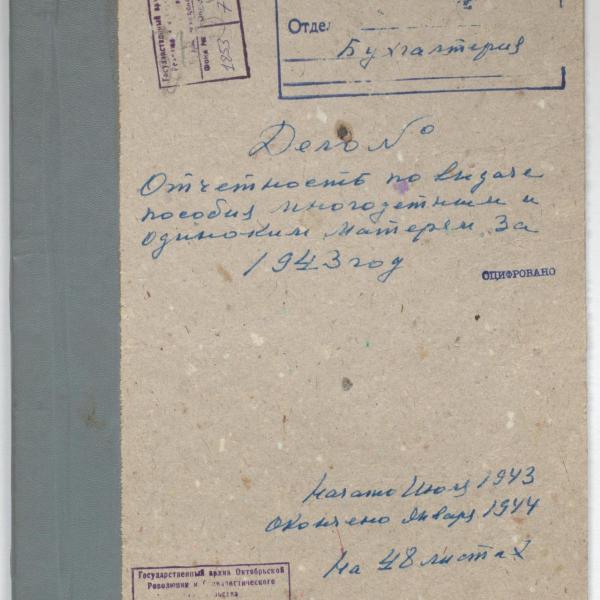 Государственный архив
Фонд №
1853
7
Отдел
Бухгалтерия
Дело №
Отчетность по выдаче
пособия многодетним и
одиноким матерям за
1943 год
ОЦИФРОВАНО
Начато Июля 1943
Окончено Января 1944
На 48 листах
Государственный архив Октябрьской
Революции и